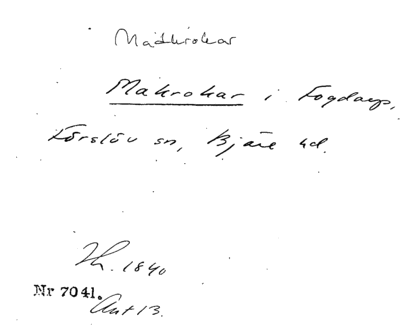 Madkrokar
Makrokar i Fogdarp,
Förslöv sn, Bjäre hd.
Th. 1840
Nr 7041.
Ant 13.